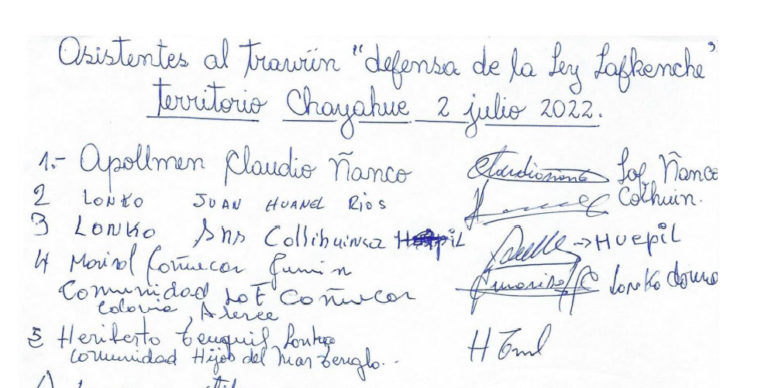 Asistentes al trawün "defensa de la Ley Lafkenche"
territorio Chayahue 2 julio 2022.
1.- Apollmen Claudio Ñanco Lof Ñanco
Colhuin.
2 LONKO JUAN HUANEL RIOS
3 LONKO Collihuinca → HUEPIL
4 Marisol Coñuecar Lonko
Comunidad Lof Coñuecar
Colonia, Alerce
5 Heriberto Lonko
Comunidad Hijos del Mar Tenglo.